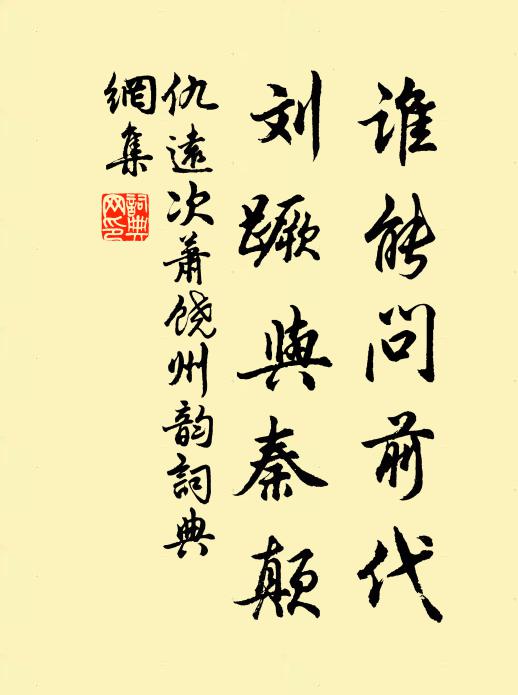 谁能问前代
刘蹶与秦颠
仇远次萧饶州韵詞典
網集
詞典
网印